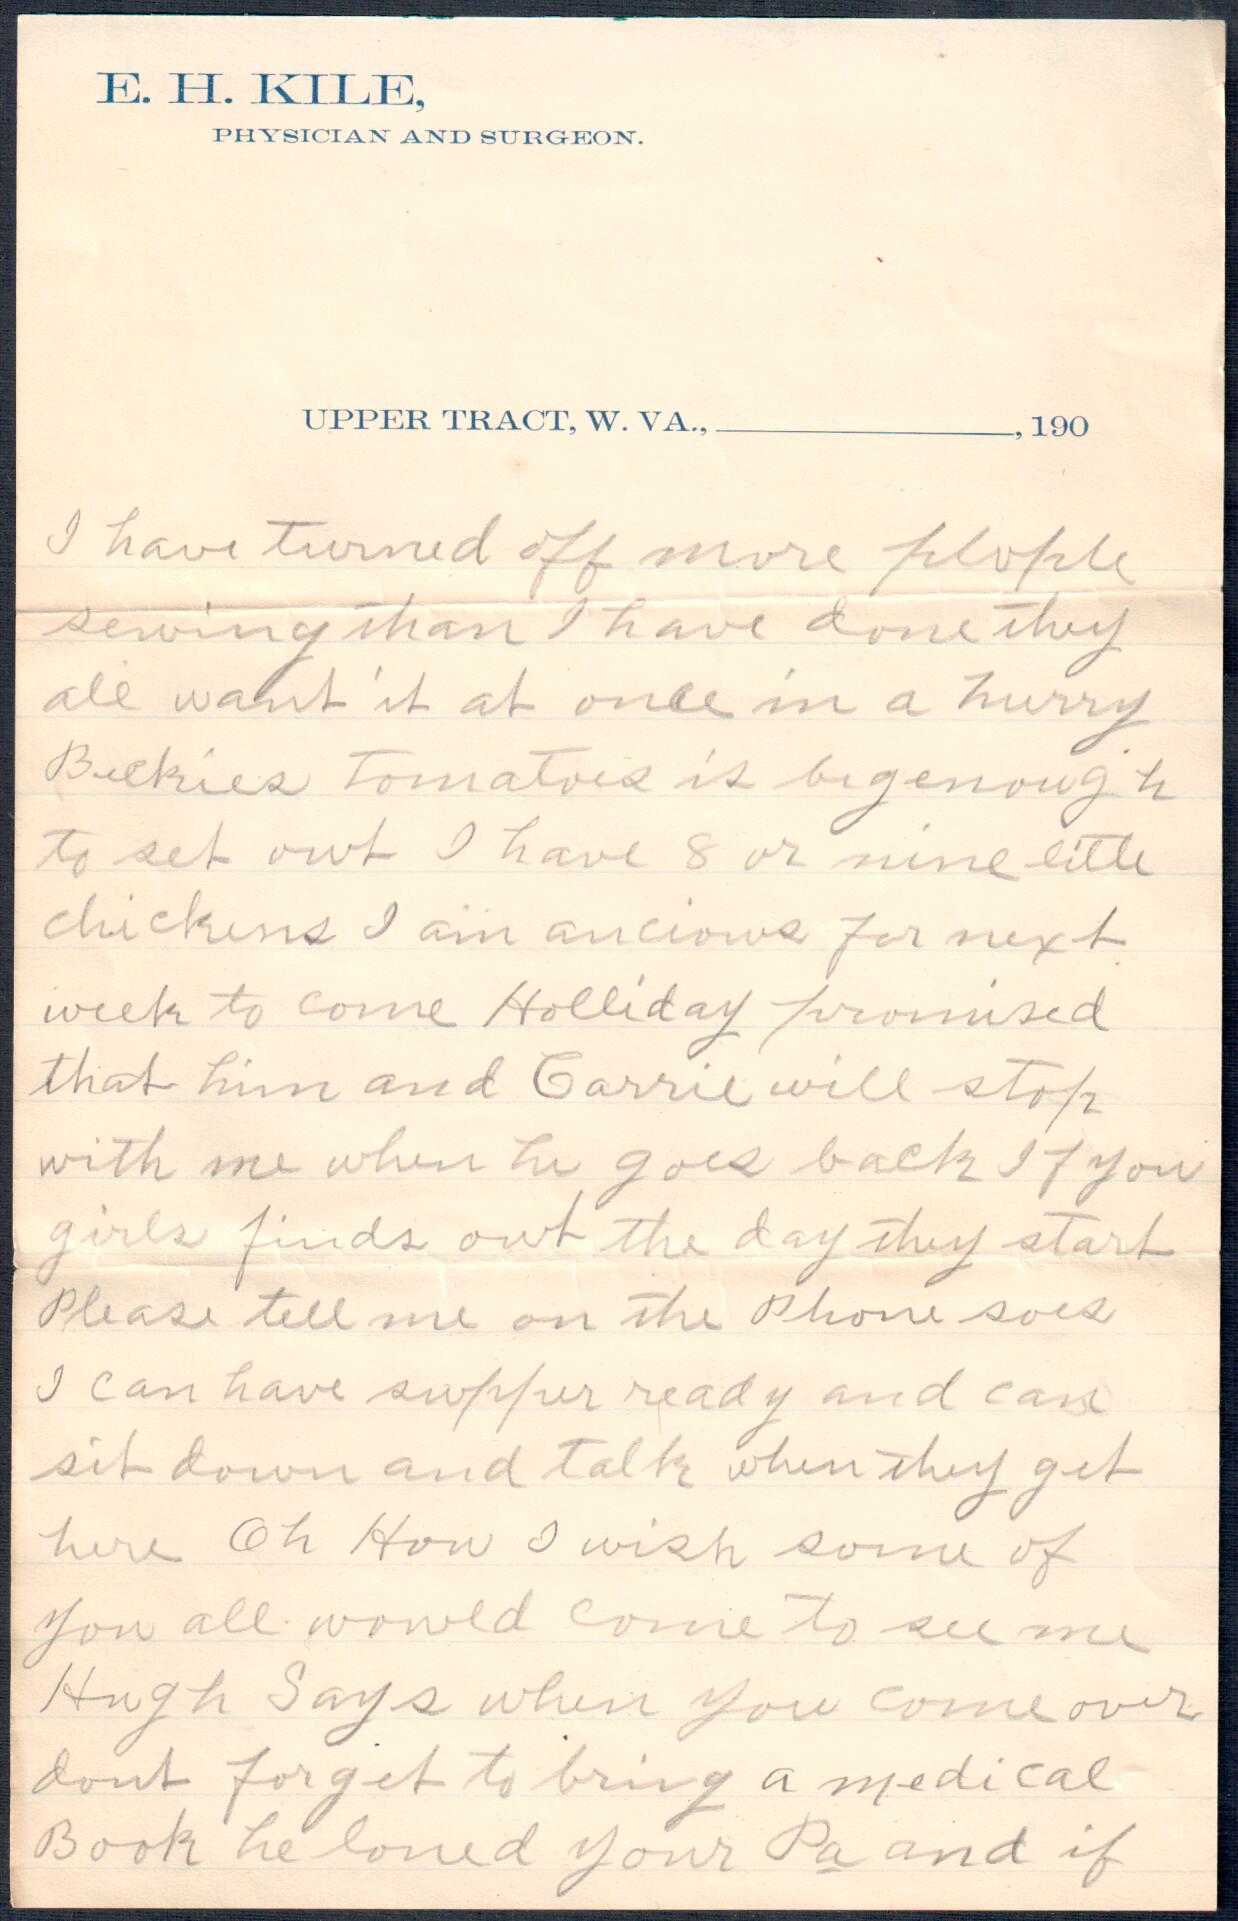 E. H. KILE,
PHYSICIAN AND SURGEON.
UPPER TRACT, W. VA., , 190
I have turned off more plople
sewing than I have done they
all want it at once in a hurry
Beckies tomatoes is bigenough
to set out I have 8 or nine little
chickens I am ancious for next
week to come Holliday promised
that him and Carrie will stop
with me when he goes back If you
girls finds out the day they start
Please tell me on the Phone soes
I can have supper ready and can
sit down and talk when they get
here Oh How I wish some of
you all would come to see me
Hugh Says when you come over
dont forget to bring a medical
Book he loned your Pa and if